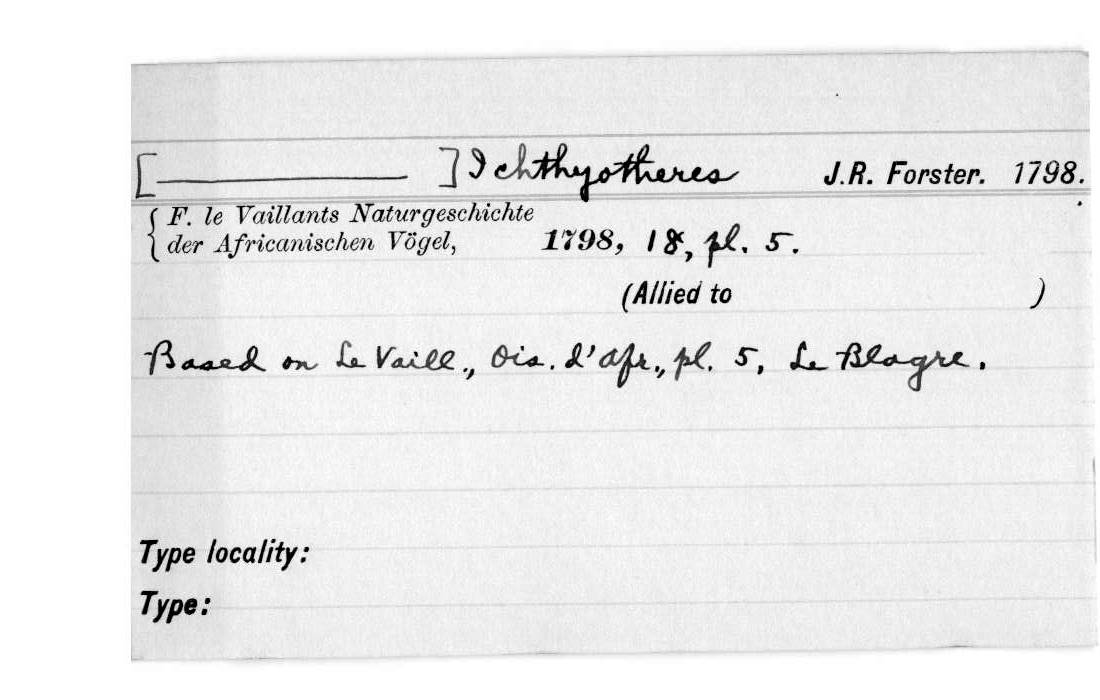 [ ] Ichthyotheres J.R. Forster. 1798.
{ F. le Vaillants Naturgeschichte
der Africanischen Vögel, 1798, 18, pl. 5.
(Allied to )
Based on Le Vaill., Ois. d'Afr., pl. 5, Le Blagre.
Type locality:
Type: